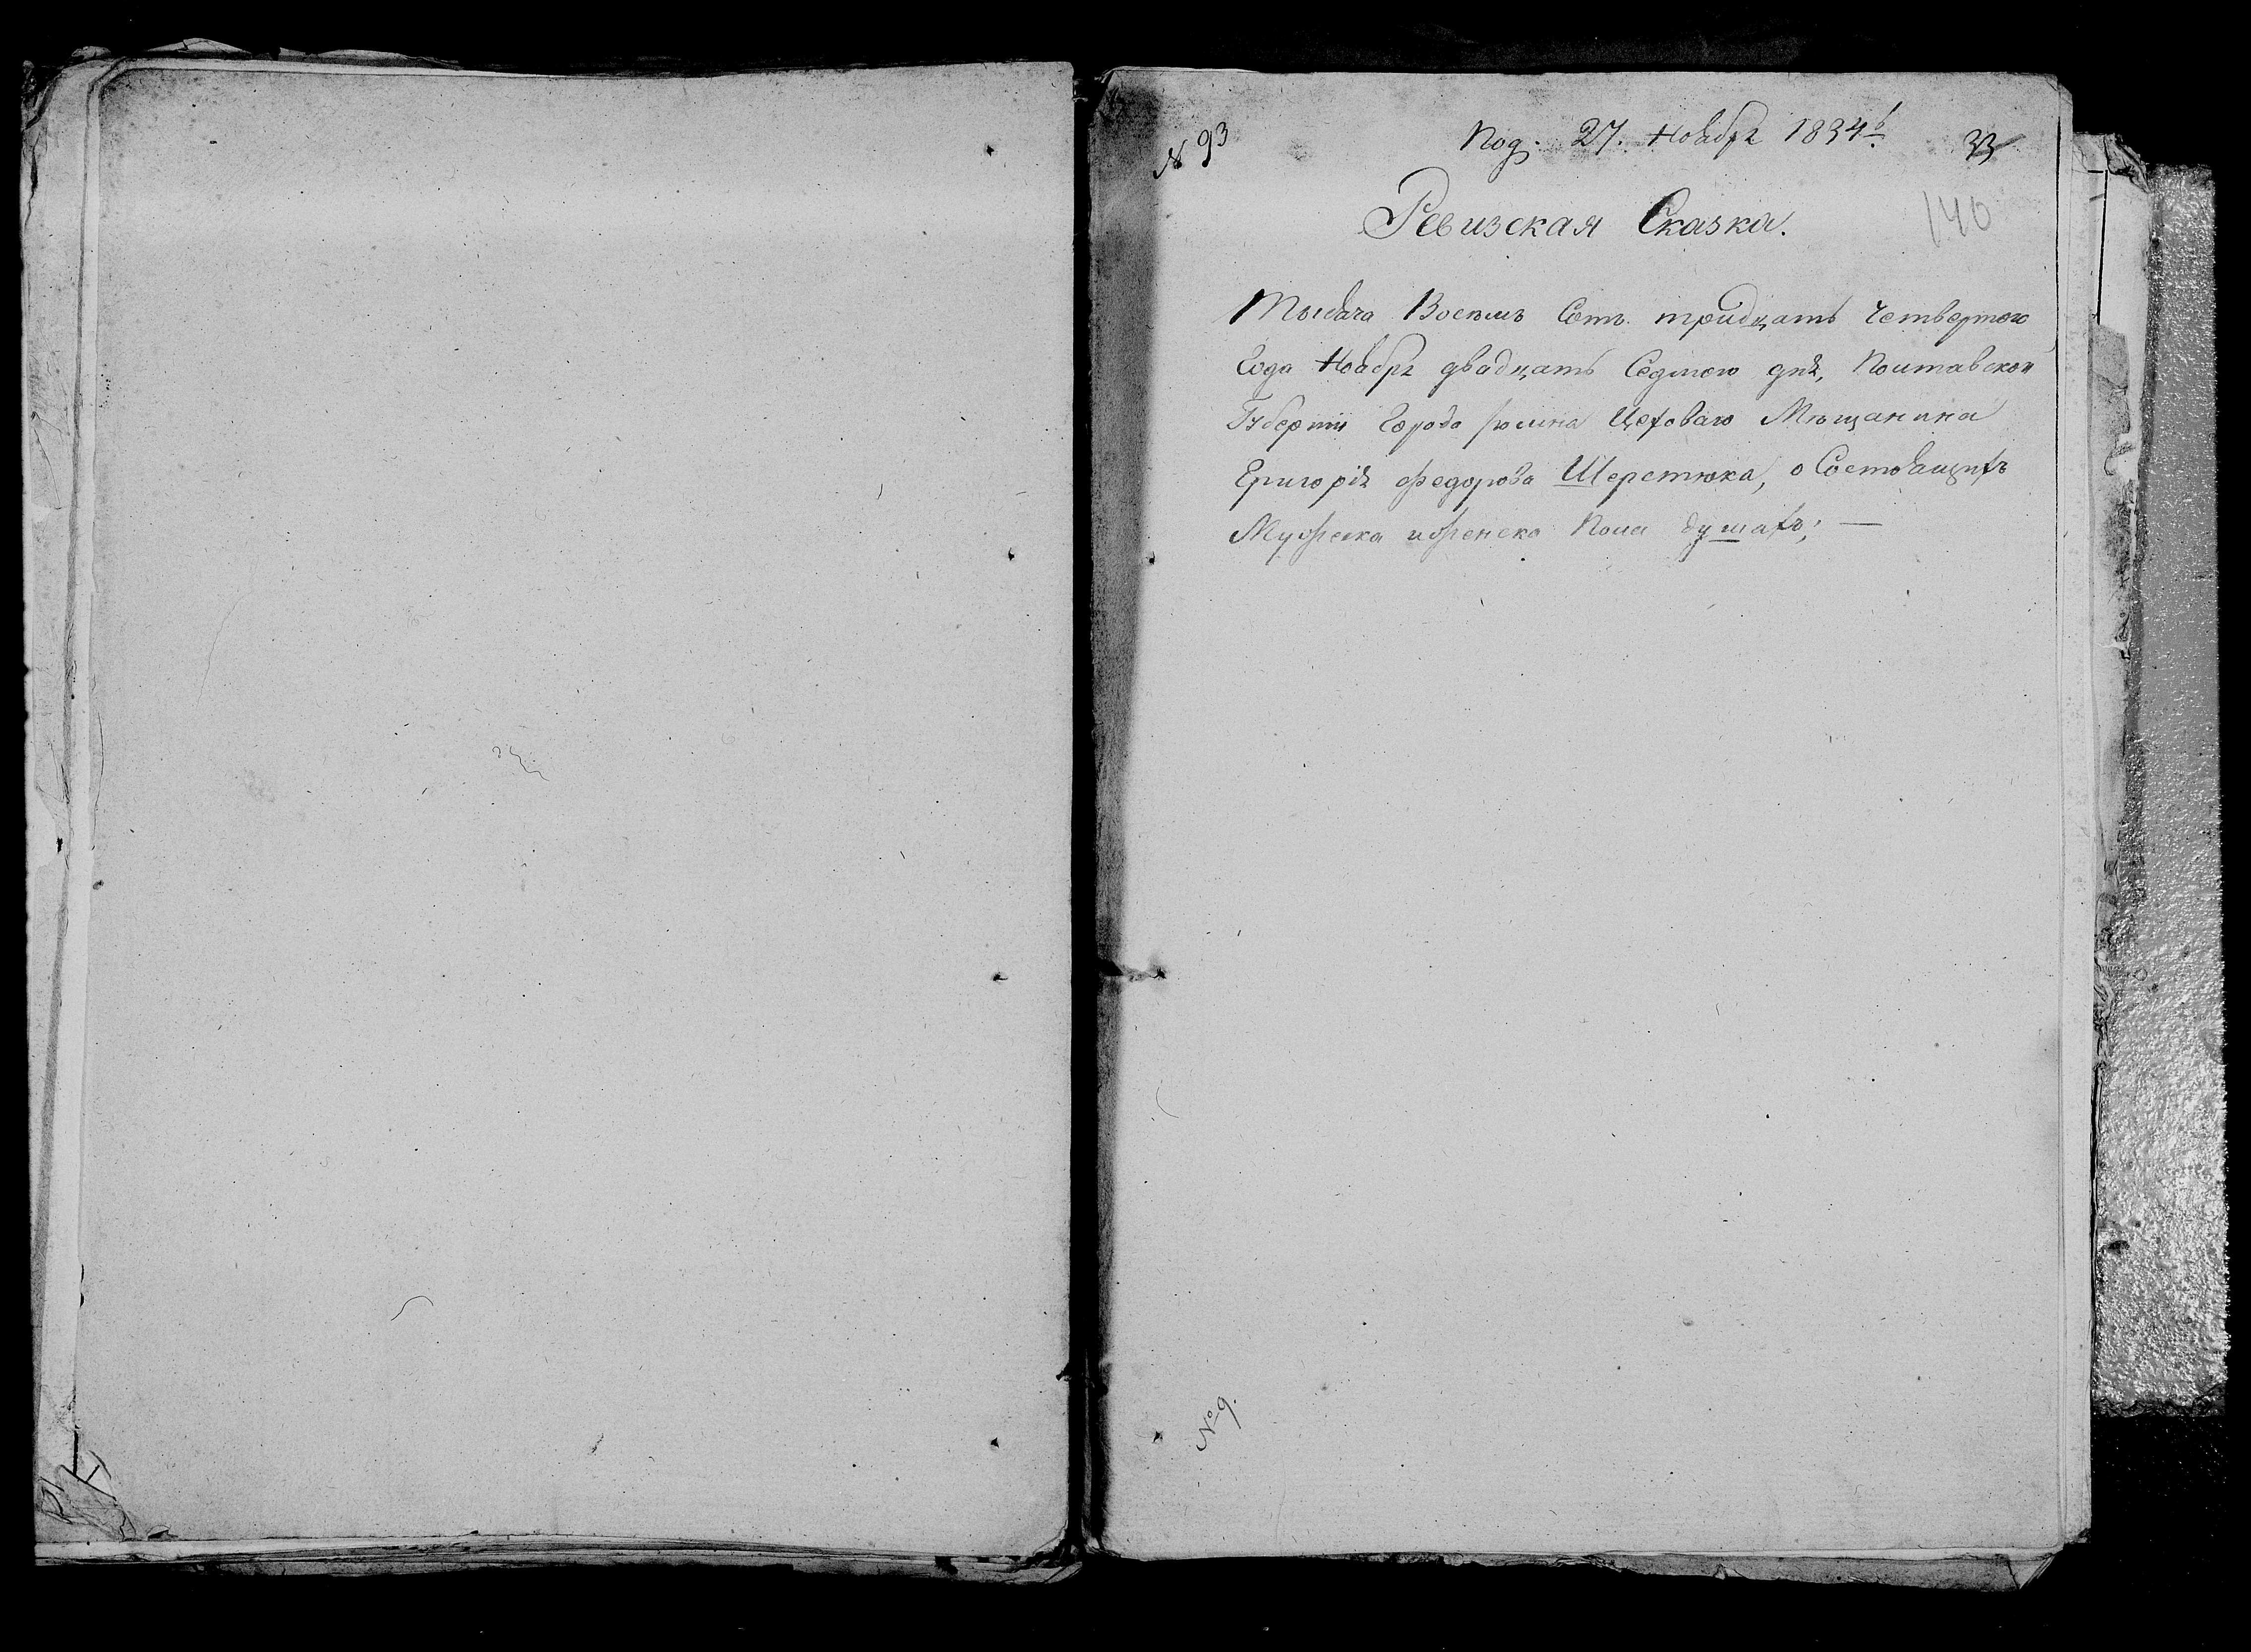 № 93
Под. 27. Ноября 1834.
33
Ревизская Сказка.
140
Тысяча Восемъ Сотъ тридцать Четвертого
Года Ноября двадцать Седмого дня, Полтавской
Губернїи Города Цеховаго Мѣщанина
Григорія Федорова Шерстюка, о Состоящихъ
Мужеска иженска Пола душахъ; —
№ 9.